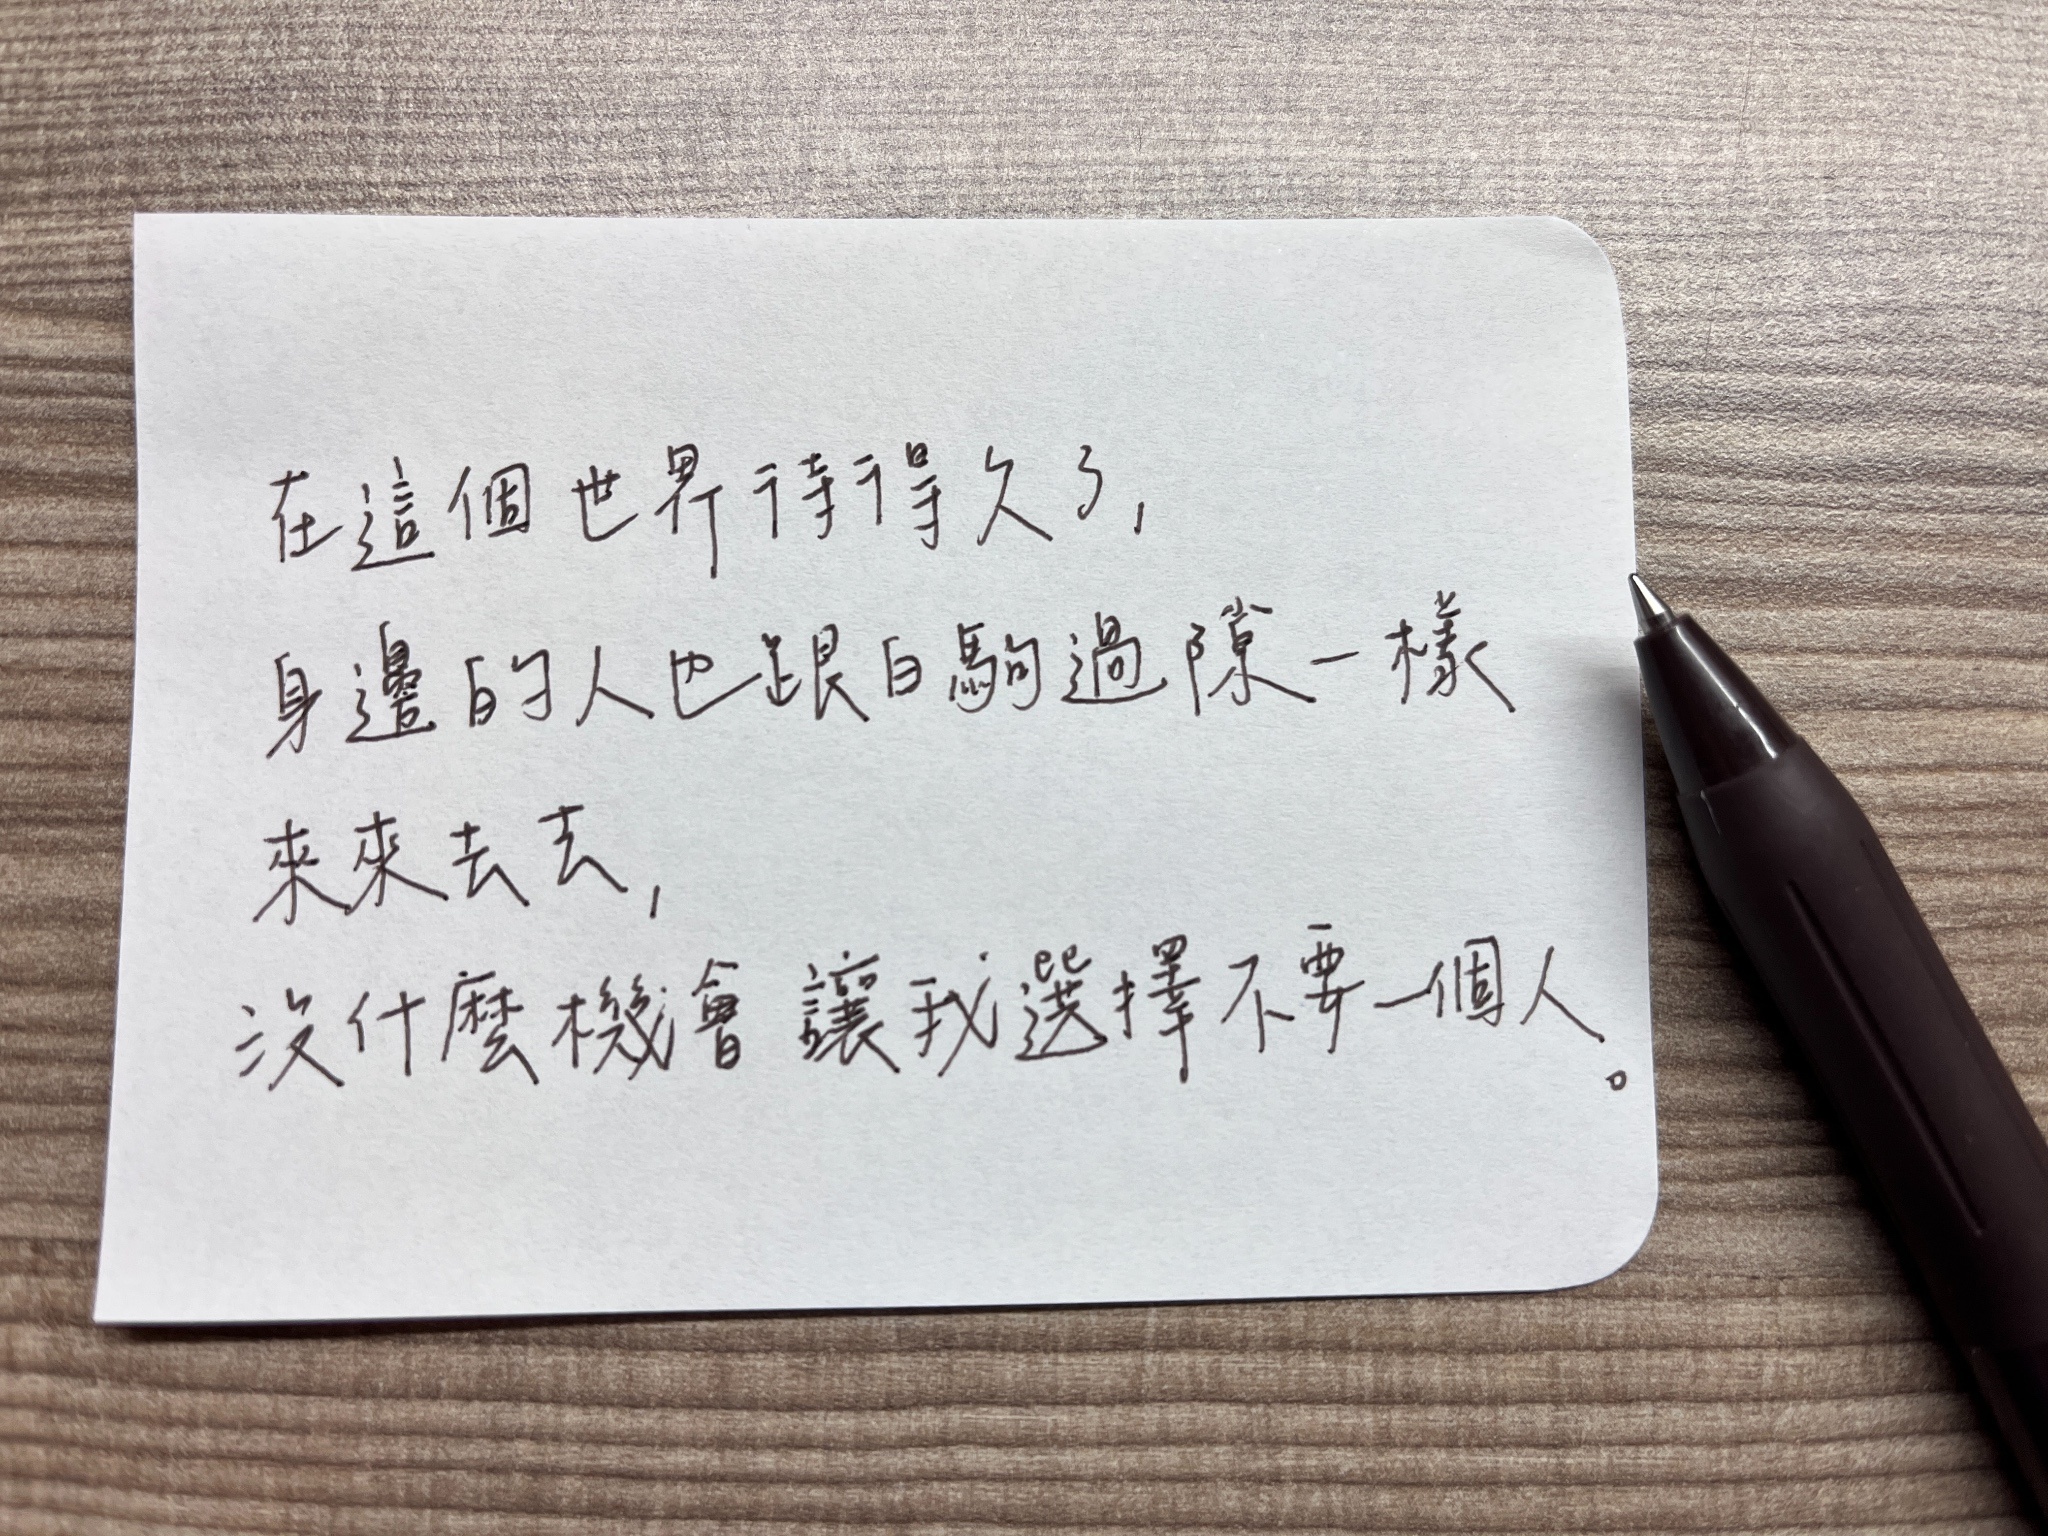 在這個世界待得久了,
身邊的人也跟白駒過隙一樣
來來去去,
沒什麼機會讓我選擇不要一個人。